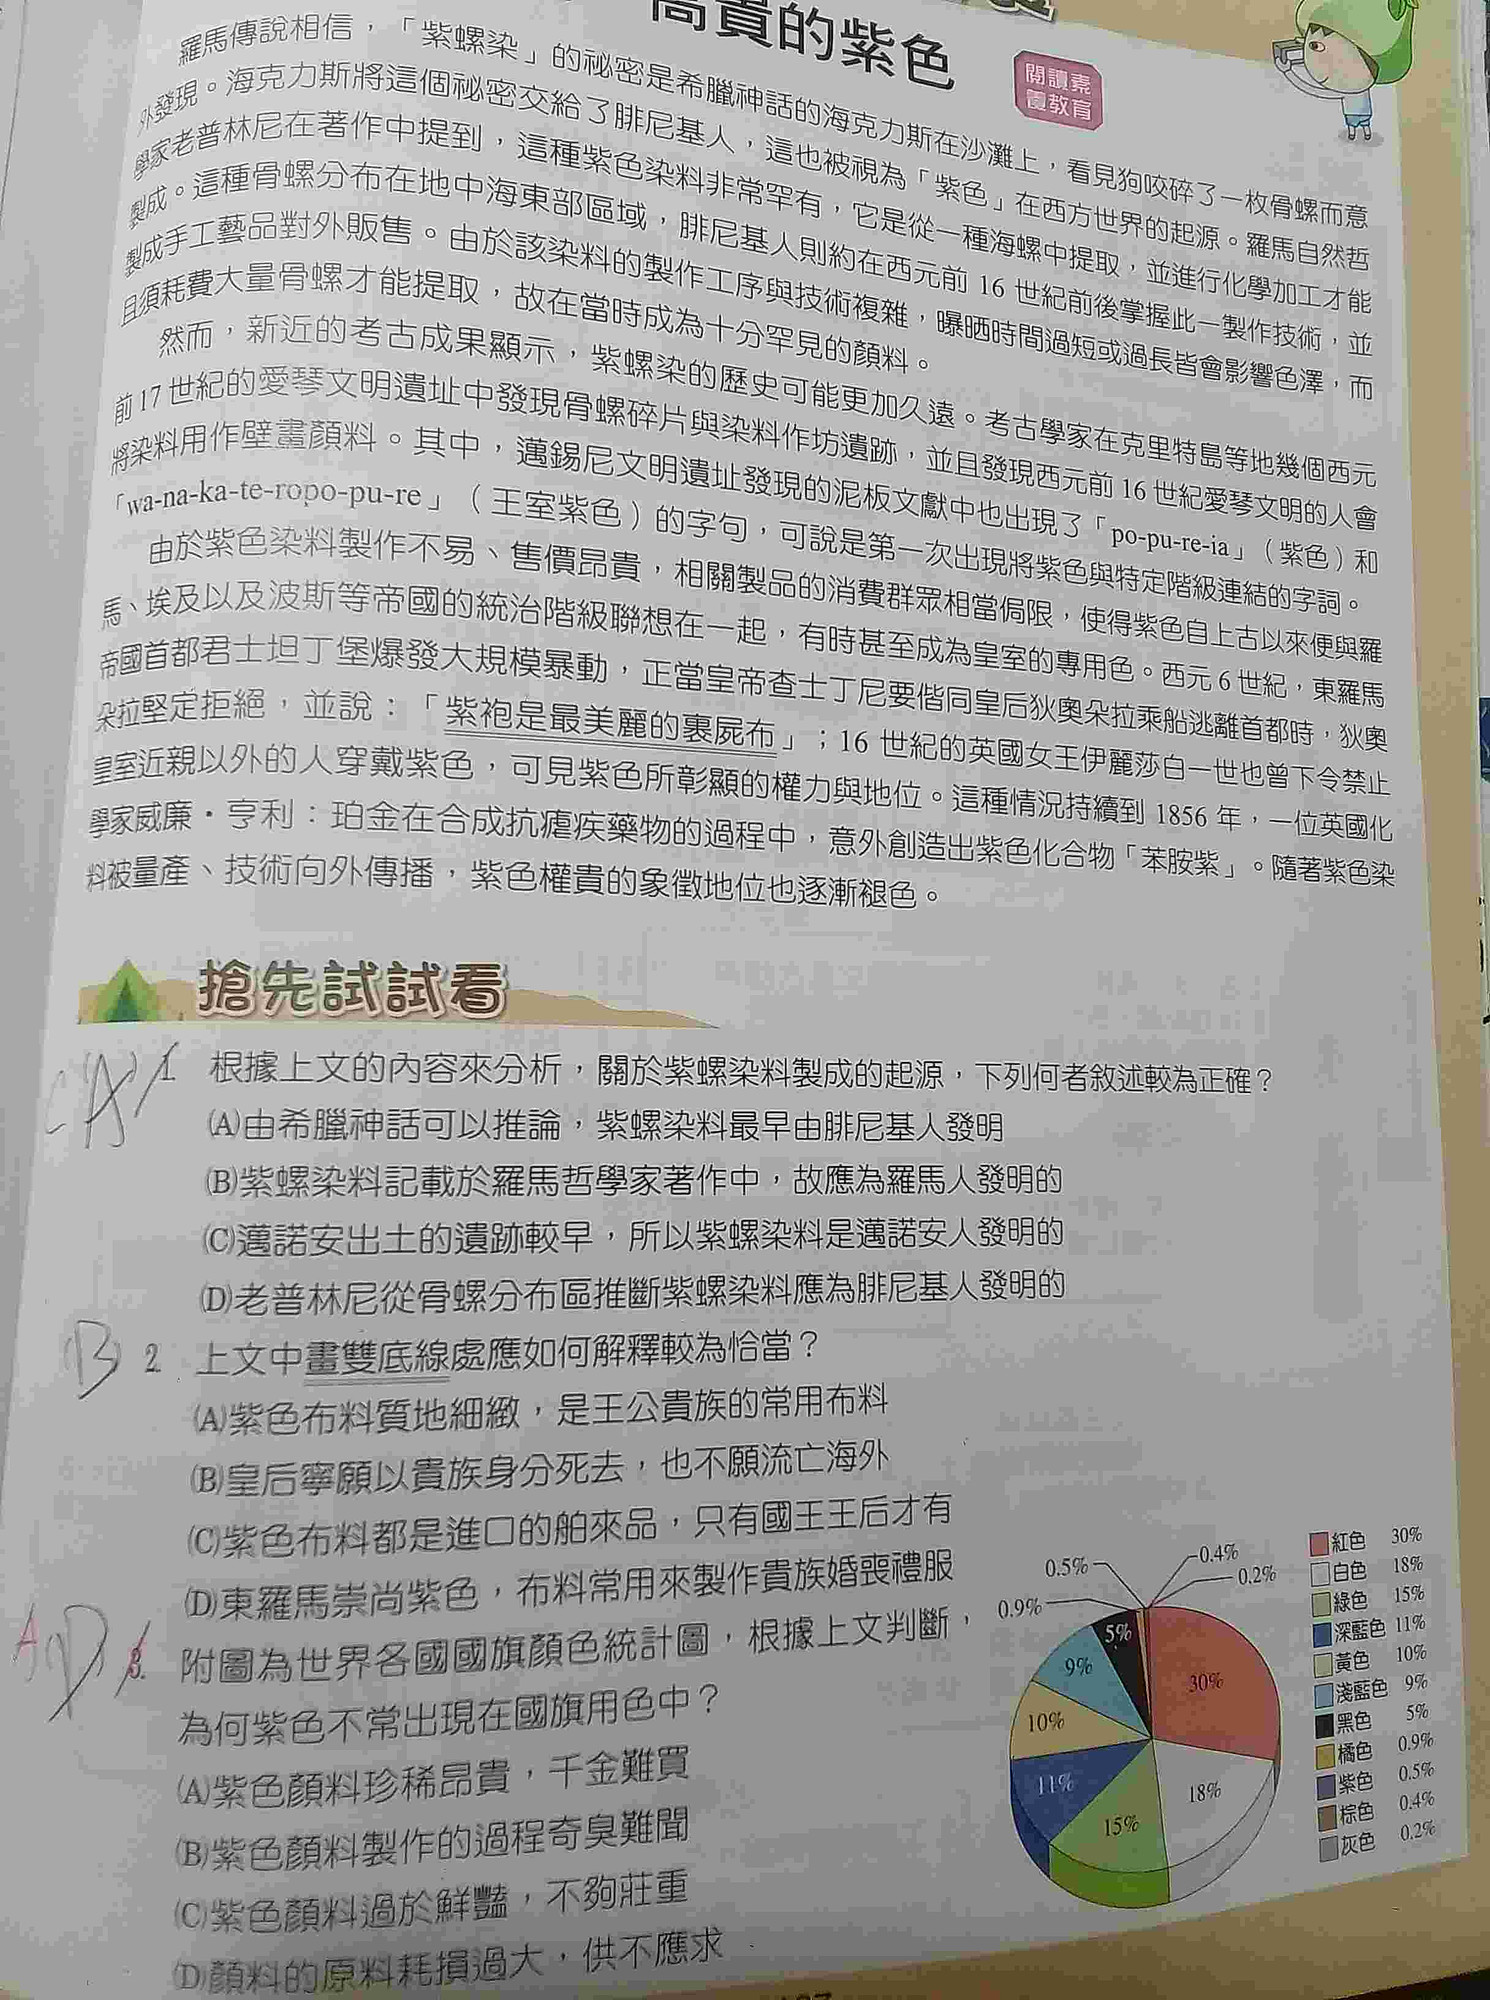 高貴的紫色
閱讀素
養教育
羅馬傳說相信，「紫螺染」的祕密是希臘神話的海克力斯在沙灘上，看見狗咬碎了一枚骨螺而意
外發現。海克力斯將這個祕密交給了腓尼基人，這也被視為「紫色」在西方世界的起源。羅馬自然哲
學家老普林尼在著作中提到，這種紫色染料非常罕有，它是從一種海螺中提取，並進行化學加工才能
製成。這種骨螺分布在地中海東部區域，腓尼基人則約在西元前 16 世紀前後掌握此一製作技術，並
製成手工藝品對外販售。由於該染料的製作工序與技術複雜，曝晒時間過短或過長皆會影響色澤，而
且須耗費大量骨螺才能提取，故在當時成為十分罕見的顏料。
然而，新近的考古成果顯示，紫螺染的歷史可能更加久遠。考古學家在克里特島等地幾個西元
前 17 世紀的愛琴文明遺址中發現骨螺碎片與染料作坊遺跡，並且發現西元前 16 世紀愛琴文明的人會
將染料用作壁畫顏料。其中，邁錫尼文明遺址發現的泥板文獻中也出現了「po-pu-re-ia」（紫色）和
「wa-na-ka-te-ropo-pu-re」（王室紫色）的字句，可說是第一次出現將紫色與特定階級連結的字詞。
由於紫色染料製作不易、售價昂貴，相關製品的消費群眾相當侷限，使得紫色自上古以來便與羅
馬、埃及以及波斯等帝國的統治階級聯想在一起，有時甚至成為皇室的專用色。西元 6 世紀，東羅馬
帝國首都君士坦丁堡爆發大規模暴動，正當皇帝查士丁尼要偕同皇后狄奧朵拉乘船逃離首都時，狄奧
朵拉堅定拒絕，並說：「紫袍是最美麗的裹屍布」；16 世紀的英國女王伊麗莎白一世也曾下令禁止
皇室近親以外的人穿戴紫色，可見紫色所彰顯的權力與地位。這種情況持續到 1856 年，一位英國化
學家威廉・亨利：珀金在合成抗瘧疾藥物的過程中，意外創造出紫色化合物「苯胺紫」。隨著紫色染
料被量產、技術向外傳播，紫色權貴的象徵地位也逐漸褪色。
搶先試試看
C (A) 1. 根據上文的內容來分析，關於紫螺染料製成的起源，下列何者敘述較為正確？
(A)由希臘神話可以推論，紫螺染料最早由腓尼基人發明
(B)紫螺染料記載於羅馬哲學家著作中，故應為羅馬人發明的
(C)邁諾安出土的遺跡較早，所以紫螺染料是邁諾安人發明的
(D)老普林尼從骨螺分布區推斷紫螺染料應為腓尼基人發明的
(B) 2. 上文中畫雙底線處應如何解釋較為恰當？
(A)紫色布料質地細緻，是王公貴族的常用布料
(B)皇后寧願以貴族身分死去，也不願流亡海外
(C)紫色布料都是進口的舶來品，只有國王王后才有
(D)東羅馬崇尚紫色，布料常用來製作貴族婚喪禮服
A (D) 3. 附圖為世界各國國旗顏色統計圖，根據上文判斷，
為何紫色不常出現在國旗用色中？
(A)紫色顏料珍稀昂貴，千金難買
(B)紫色顏料製作的過程奇臭難聞
(C)紫色顏料過於鮮豔，不夠莊重
(D)顏料的原料耗損過大，供不應求
0.5%
0.4%
0.2%
0.9%
5%
9%
30%
10%
11%
18%
15%
紅色 30%
白色 18%
綠色 15%
深藍色 11%
黃色 10%
淺藍色 9%
黑色 5%
橘色 0.9%
紫色 0.5%
棕色 0.4%
灰色 0.2%